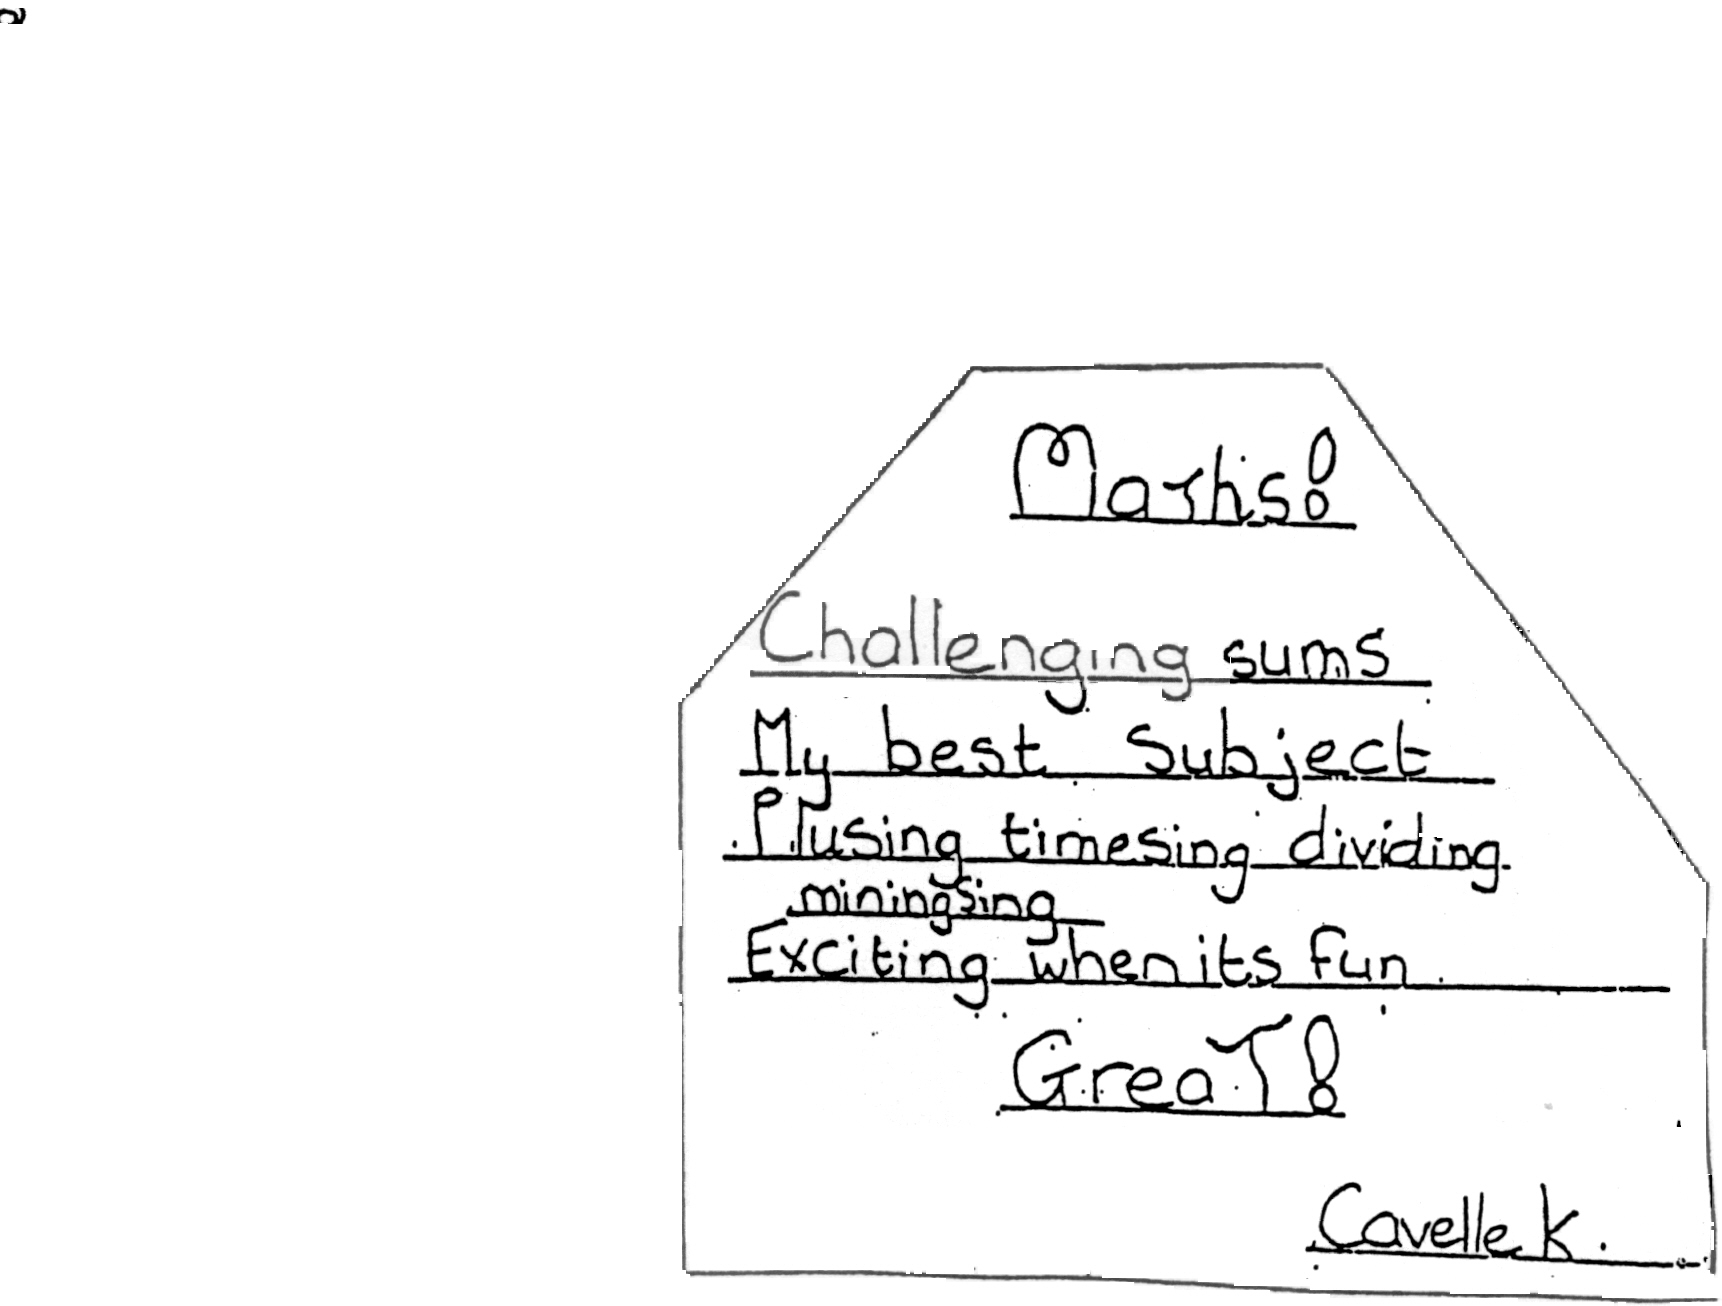 Maths!
Challenging sums
My best Subject
Plusing timesing dividing
miningsing
Exciting when its fun
GreaT!
Cavelle K.